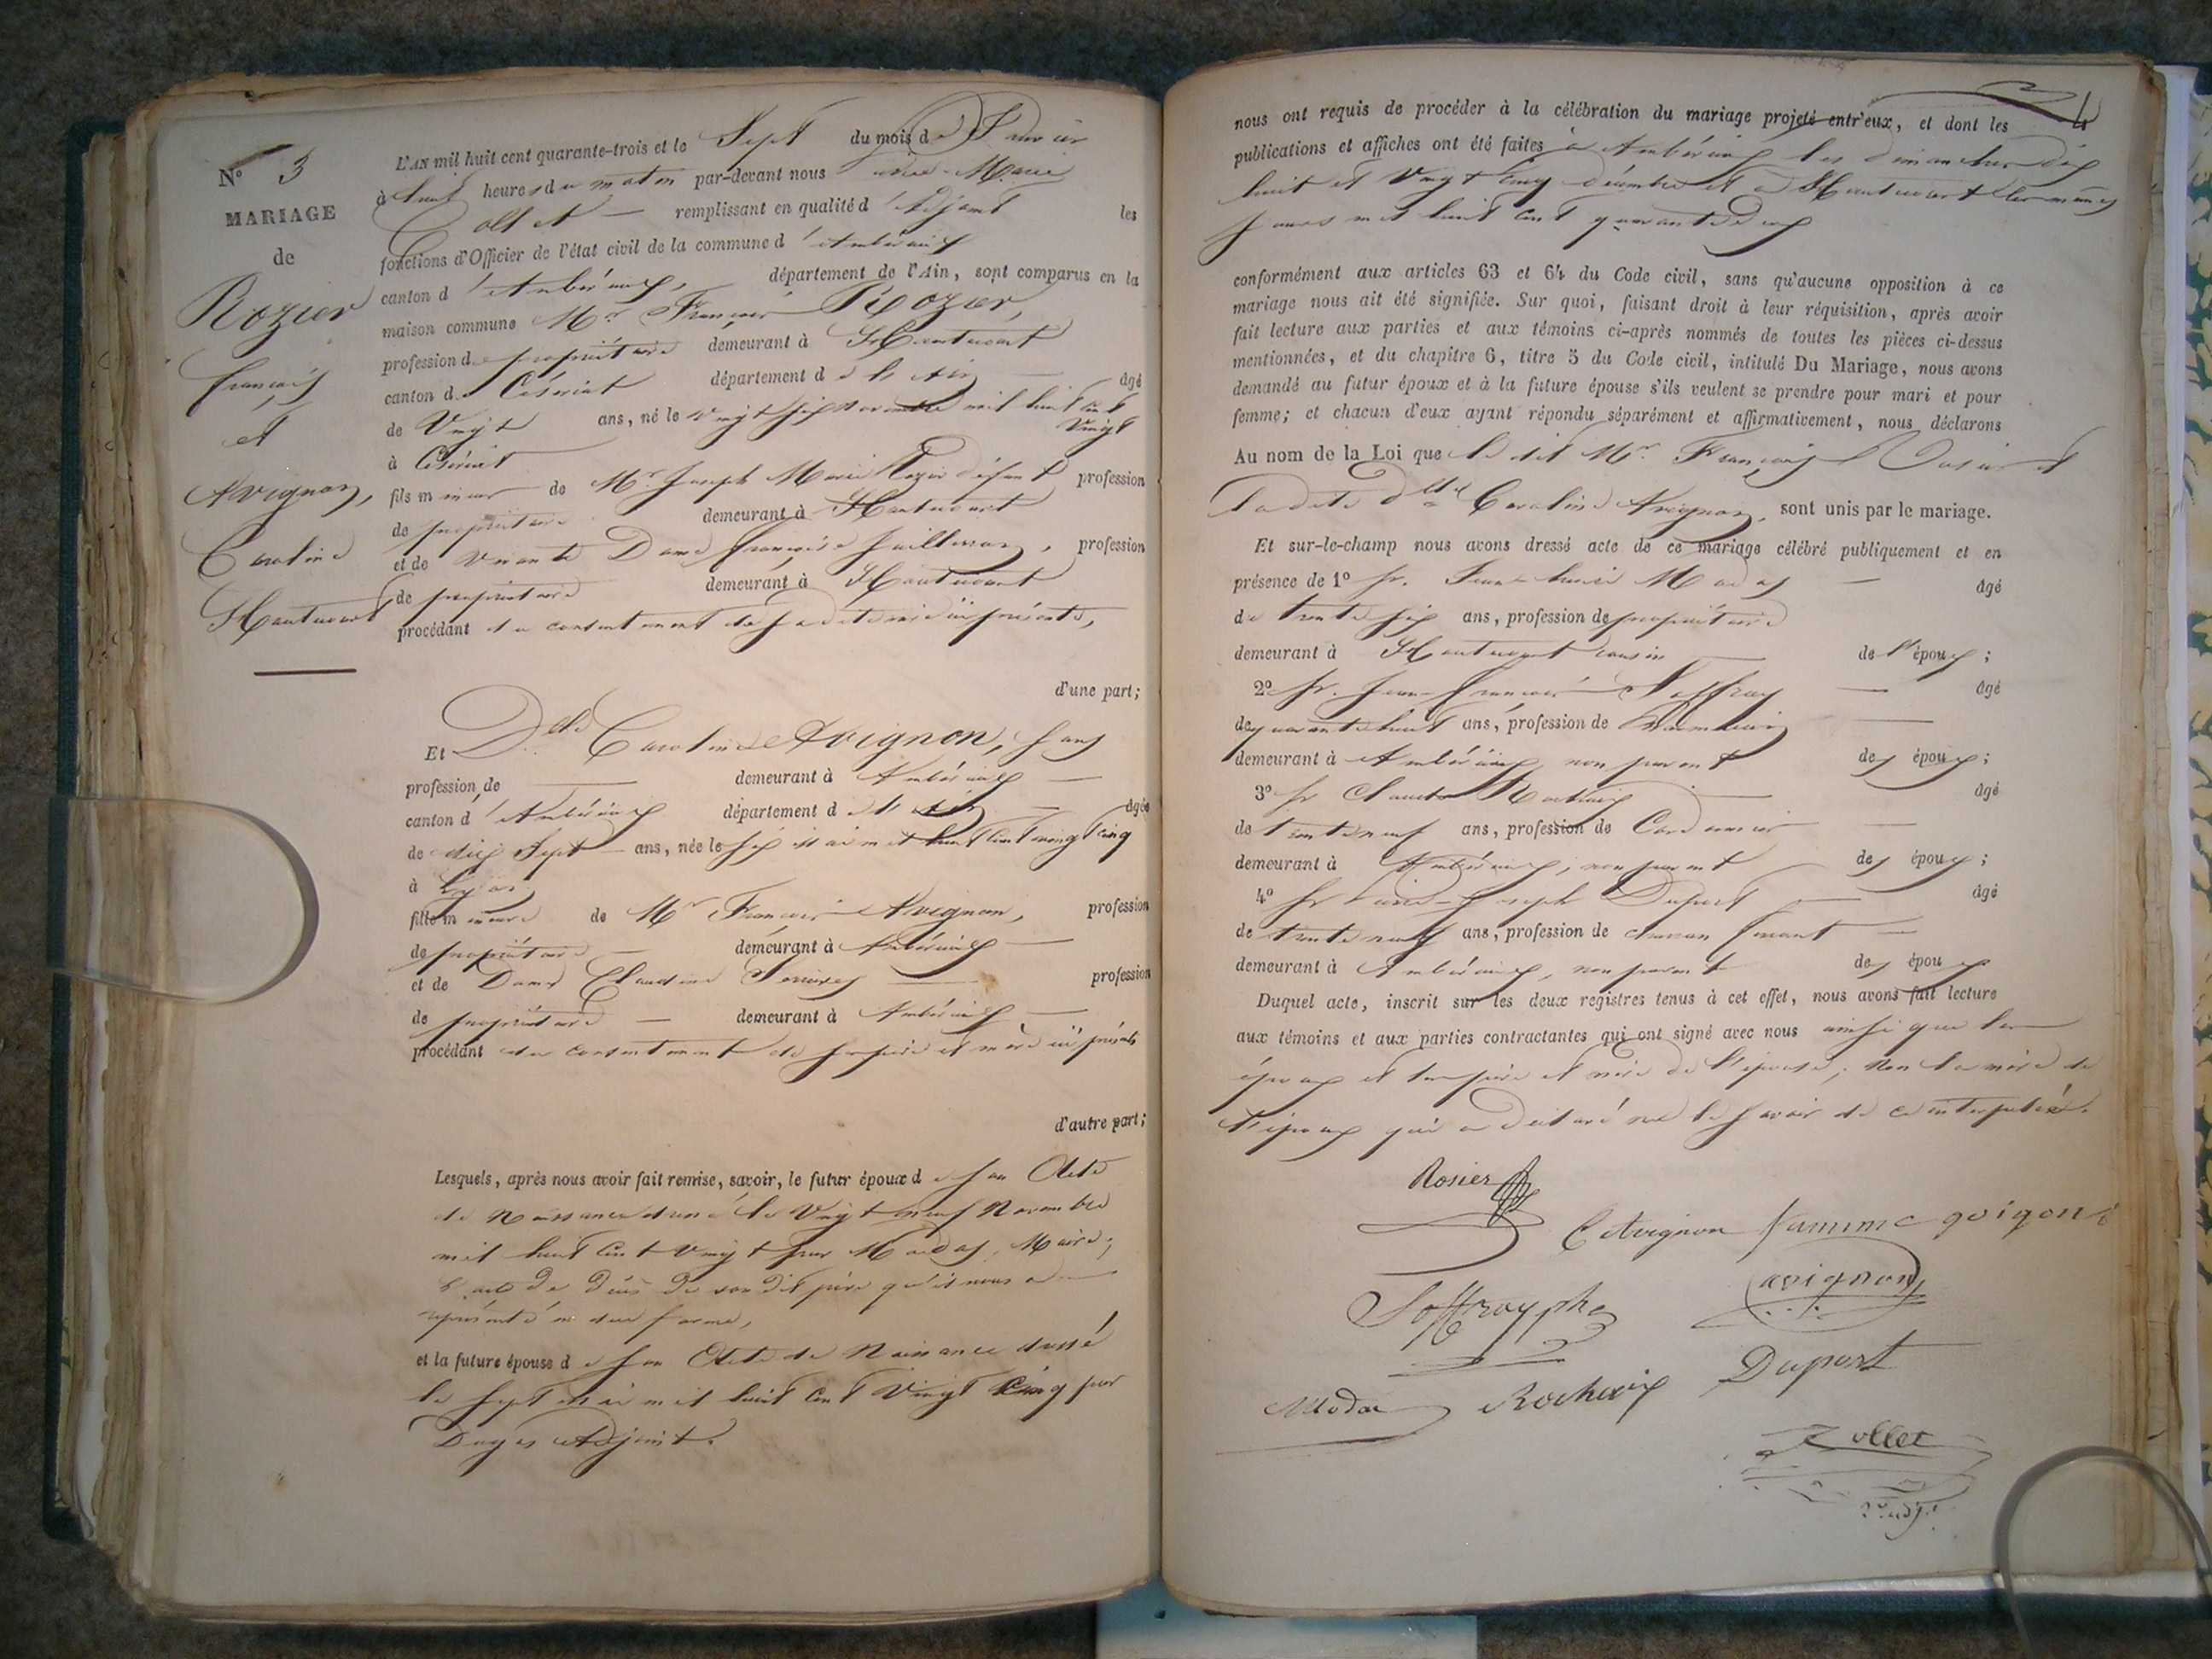 N° 3
MARIAGE
de
Rozier
françois
et
Avignon,
Caroline
Hautecourt
L'AN mil huit cent quarante-trois et le Sept du mois de Janvier
à huit heures du matin par-devant nous Marie
Collet remplissant en qualité d'Adjoint les
fonctions d'Officier de l'état civil de la commune d'Ambérieux
canton d'Ambérieux, département de l'Ain, sont comparus en la
maison commune Mr. François Rozier,
profession de propriétaire demeurant à Hautecourt
canton de Céseriat département de l'Ain âgé
de Vingt ans, né le vingt six novembre mil huit cent
vingt
à Céseriat
fils mineur de Mr Joseph Marie Rozier défunt profession
de propriétaire demeurant à Hautecourt
et de vivante Dame françoise profession
de propriétaire demeurant à Hautecourt
procédant du consentement de sa dite mère ici présente,
d'une part;
Et Delle Caroline Avignon, sans
profession de demeurant à Ambérieux
canton d'Ambérieux département de l'Ain âgée
de dix Sept ans, née le six mai mil huit cent vingt cinq
à Lyon
fille mineure de Mr François Avignon, profession
de propriétaire demeurant à Ambérieux
et de Dame Claudine profession
de propriétaire demeurant à Ambérieux
procédant du consentement de ses père et mère ici présents
d'autre part;
Lesquels, après nous avoir fait remise, savoir, le futur époux de son Acte
de Naissance dressé le Vingt neuf Novembre
mil huit cent vingt par Modas, Maire;
l'acte de décès de son dit père qu'il nous a
représenté en due forme,
et la future épouse de son Acte de Naissance dressé
le sept mai mil huit cent vingt cinq par
Adjoint.
4
nous ont requis de procéder à la célébration du mariage projeté entr'eux, et dont les
publications et affiches ont été faites à Ambérieux les dimanches dix
huit et vingt cinq décembre et à Hautecourt les mêmes
jours mil huit cent quarante deux
conformément aux articles 63 et 64 du Code civil, sans qu'aucune opposition à ce
mariage nous ait été signifiée. Sur quoi, faisant droit à leur réquisition, après avoir
fait lecture aux parties et aux témoins ci-après nommés de toutes les pièces ci-dessus
mentionnées, et du chapitre 6, titre 5 du Code civil, intitulé Du Mariage, nous avons
demandé au futur époux et à la future épouse s'ils veulent se prendre pour mari et pour
femme; et chacun d'eux ayant répondu séparément et affirmativement, nous déclarons
Au nom de la Loi que le dit Mr. François Rosier et
la dite delle Caroline Avignon, sont unis par le mariage.
Et sur-le-champ nous avons dressé acte de ce mariage célébré publiquement et en
présence de 1° Sr. Jean Modas âgé
de trente six ans, profession de propriétaire
demeurant à Hautecourt cousin de l'époux;
2° Sr. Jean-françois Soffray âgé
de quarante huit ans, profession de
demeurant à Ambérieux, non parent des époux;
3° Sr Claude Rocheix âgé
de trente neuf ans, profession de Cordonnier
demeurant à Ambérieux, non parent des époux;
4° Sr Joseph Duport âgé
de trente neuf ans, profession de
demeurant à Ambérieux, non parent des époux
Duquel acte, inscrit sur les deux registres tenus à cet effet, nous avons fait lecture
aux témoins et aux parties contractantes qui ont signé avec nous ainsi que les
époux et les père et mère de l'épouse; Non la mère de
l'époux qui a déclaré ne le savoir de ce interpellée.
Rosier
C Avignon famme
Soffray avignon
Modas Rocheix Duport
Collet